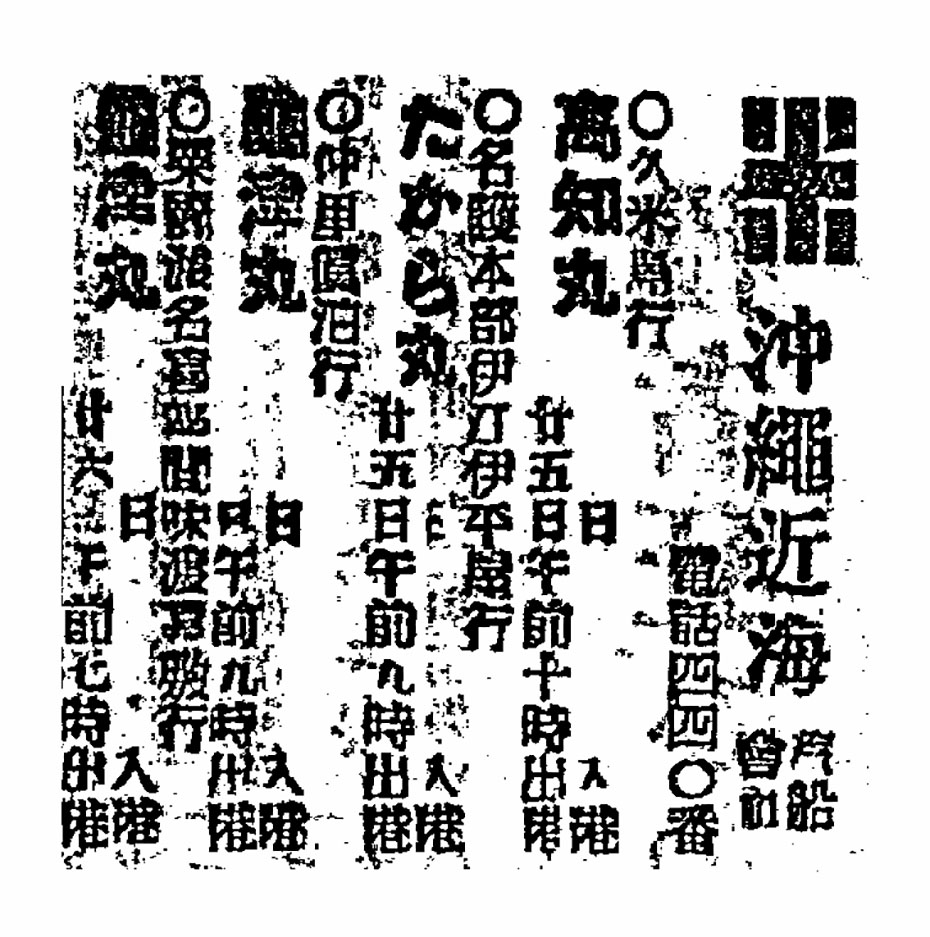 沖繩近海汽船會社
電話四四〇番
〇久米島行
高知丸 日 入港
廿五日午前十時出港
〇名護本部伊江伊平屋行
たから丸 日 入港
廿五日午前九時出港
〇仲里真泊行
丸 日 入港
日午前九時出港
〇粟國渡名喜座間味渡嘉敷行
丸 日 入港
廿六 午前七時出港